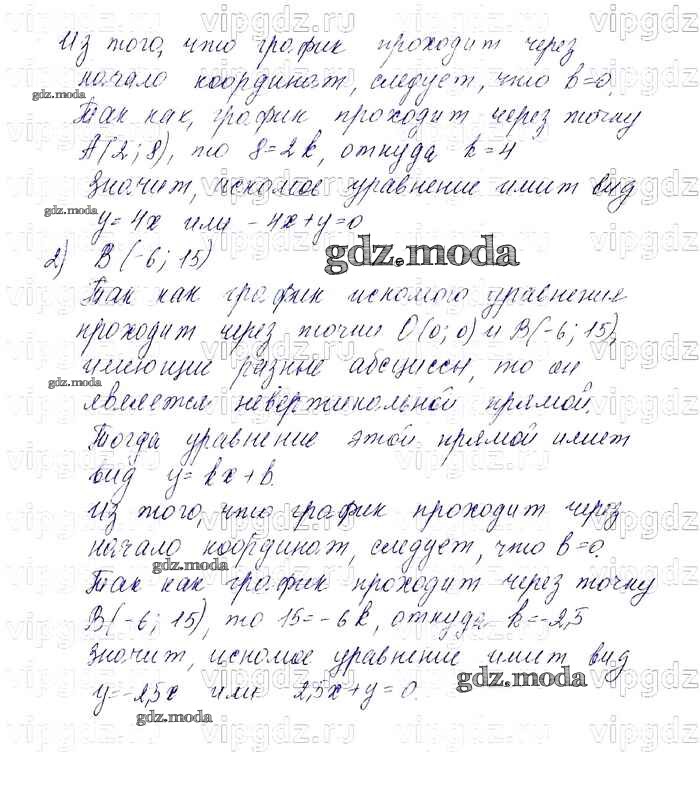 Из того, что график проходит через
начало координат, следует, что b=0.
Так как, график проходит через точку
A(2; 8), то 8=2k, откуда k=4
Значит, искомое уравнение имит вид
y=4x или -4x+y=0
2) B(-6; 15)
Так как график искомого уравнения
проходит через точки O(0; 0) и B(-6; 15),
имеющие разные абсциссы, то он
является невертикальной прямой.
Тогда уравнение этой прямой имеет
вид y=kx+b.
Из того, что график проходит через
начало координат, следует, что b=0.
Так как график проходит через точку
B(-6; 15), то 15=-6k, откуда k=-2,5
Значит, искомое уравнение имит вид
y=-2,5x или 2,5x+y=0.
gdz.moda
vipgdz.ru